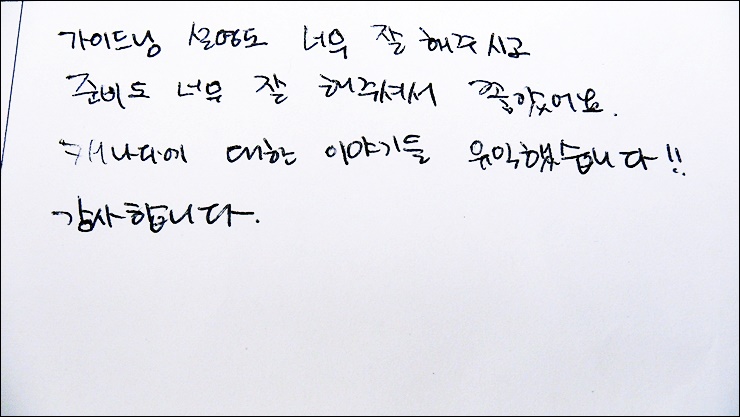 가이드님 설명도 너무 잘 해주시고
준비도 너무 잘 해주셔서 좋았어요.
캐나다에 대한 이야기들 유익했습니다!!
감사합니다.